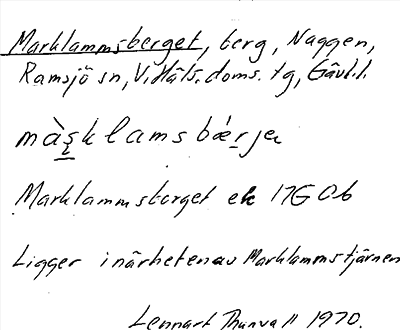 Marklammsberget, berg, Naggen,
Ramsjö sn, V. Häls. doms. tg, Gävl.l.
màşklamsbǽrjeʀ
Marklammsberget ek 17G 0b
Ligger i närheten av Marklammstjärnen
Lennart Thunvall 1970.